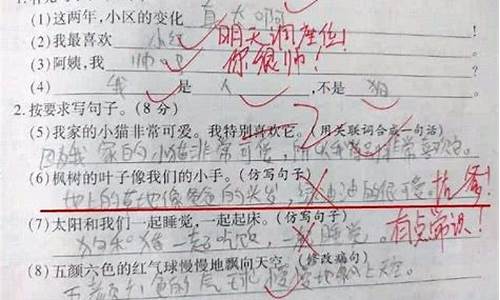 (1)这两年,小区的变化 真大啊
(2)我最喜欢 小红 明天调座位!
(3)阿姨,我 帅 吧 你很帅!
(4) 我 是 人 ,不是 狗
2.按要求写句子。(8 分)
(5)我家的小猫非常可爱。我特别喜欢它。(用关联词合成一句话)
因为我家的小猫非常可爱,所以我 非常喜欢它。
(6)枫树的叶子像我们的小手。(仿写句子)
地上的草地像爸爸的头发,绿油油的很可爱。
(7)太阳和我们一起睡觉,一起起床。(仿写句子) 有点常识!
狗和猪一起吃饭,一起睡觉。
(8)五颜六色的红气球慢慢地飘向天空。(修改病句)
五颜六色的气球慢慢地飘上天空。